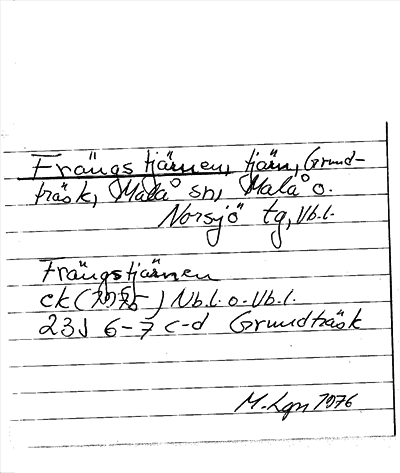 Frängstjärnen, tjärn, Grund-
träsk, Malå sn, Malå o.
Norsjö tg, Vb.l.
Frängstjärnen
ck (1975) Nb.l. o. Vb.l.
23J 6-7 c-d Grundträsk
M. Lgn 1976